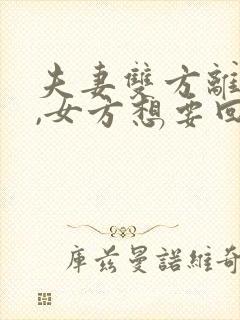 夫妻雙方離
,女方想要回
庫茲曼諾維奇